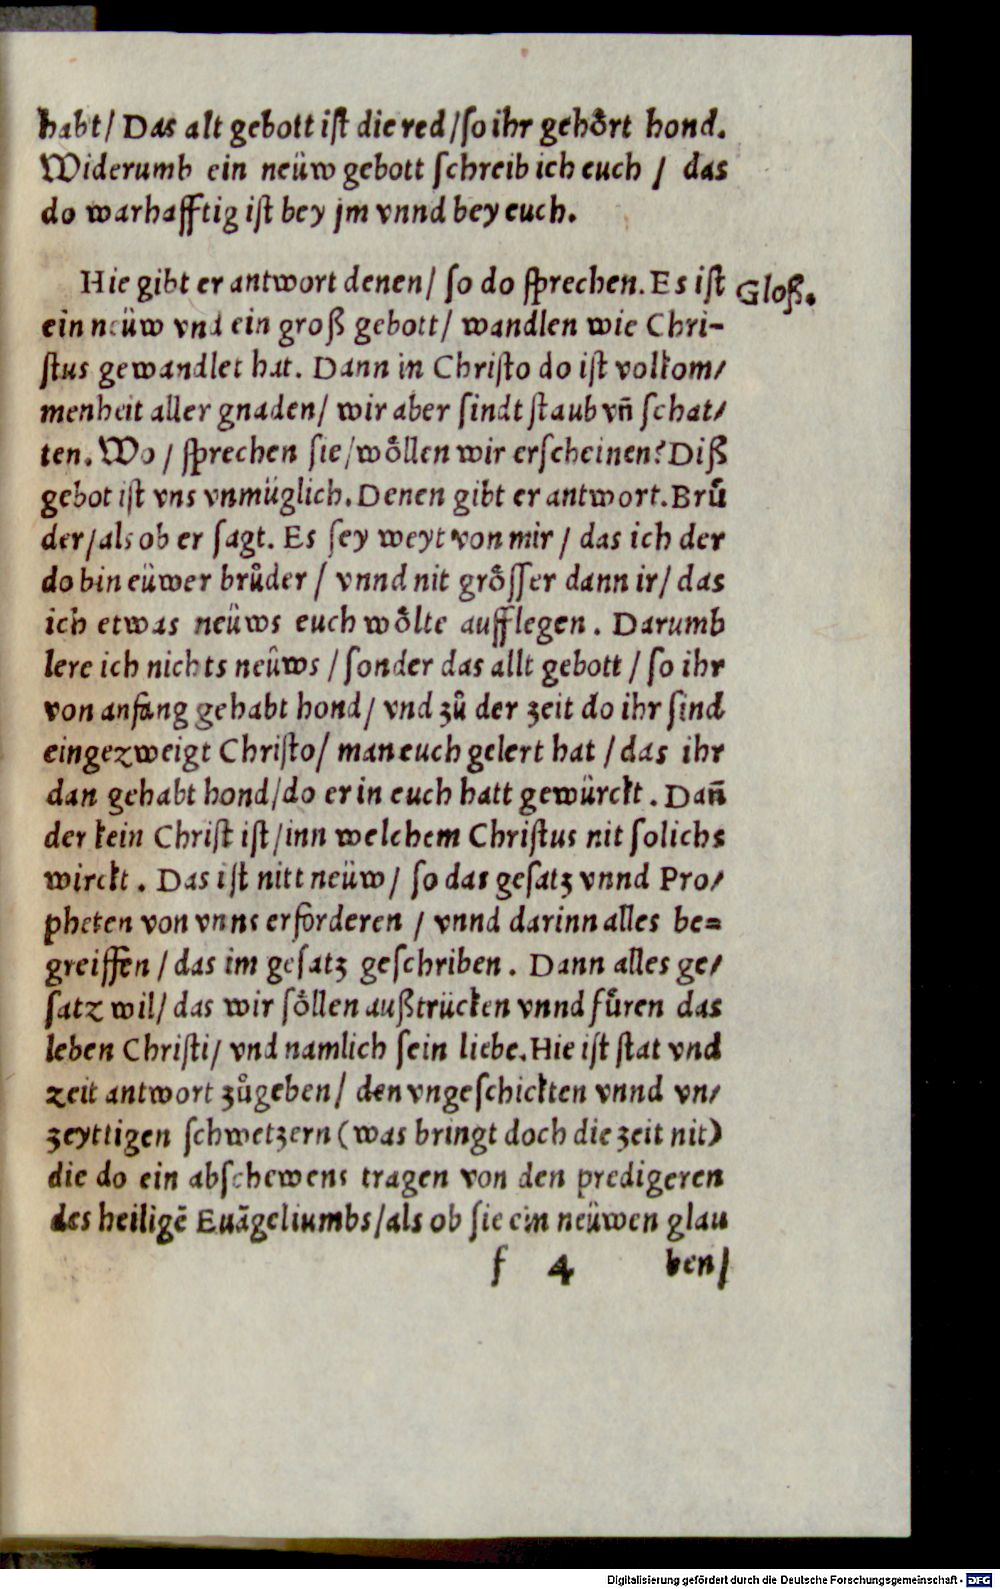 habt/ Das alt gebott ist die red/so ihr gehoͤrt hond.
Widerumb ein neüw gebott schreib ich euch / das
do warhafftig ist bey jm vnnd bey euch.
Hie gibt er antwort denen/ so do sprechen. Es ist
Gloß.
ein neüw vnd ein groß gebott/ wandlen wie Chri-
stus gewandlet hat. Dann in Christo do ist volkom/
menheit aller gnaden/ wir aber sindt staub vñ schat/
ten. Wo / sprechen sie/woͤllen wir erscheinen? Diß
gebot ist vns vnmüglich. Denen gibt er antwort. Bruͤ
der/als ob er sagt. Es sey weyt von mir / das ich der
do bin eüwer bruͤder / vnnd nit groͤsser dann ir/ das
ich etwas neüws euch woͤlte aufflegen. Darumb
lere ich nichts neüws / sonder das allt gebott / so ihr
von anfang gehabt hond/ vnd zuͦ der zeit do ihr sind
eingezweigt Christo/ man euch gelert hat / das ihr
dan gehabt hond/do er in euch hatt gewürckt. Dañ
der kein Christ ist/inn welchem Christus nit solichs
wirckt. Das ist nitt neüw/ so das gesatz vnnd Pro/
pheten von vnns erforderen / vnnd darinn alles be=
greiffen / das im gesatz geschriben. Dann alles ge/
satz wil/ das wir soͤllen außtrücken vnnd fuͤren das
leben Christi/ vnd namlich sein liebe. Hie ist stat vnd
zeit antwort zuͦgeben/ den vngeschickten vnnd vn/
zeyttigen schwetzern (was bringt doch die zeit nit)
die do ein abschewens tragen von den predigeren
des heiligẽ Euãgeliumbs/als ob sie ein neüwen glau
f 4 ben/
Digitalisierung gefördert durch die Deutsche Forschungsgemeinschaft - DFG